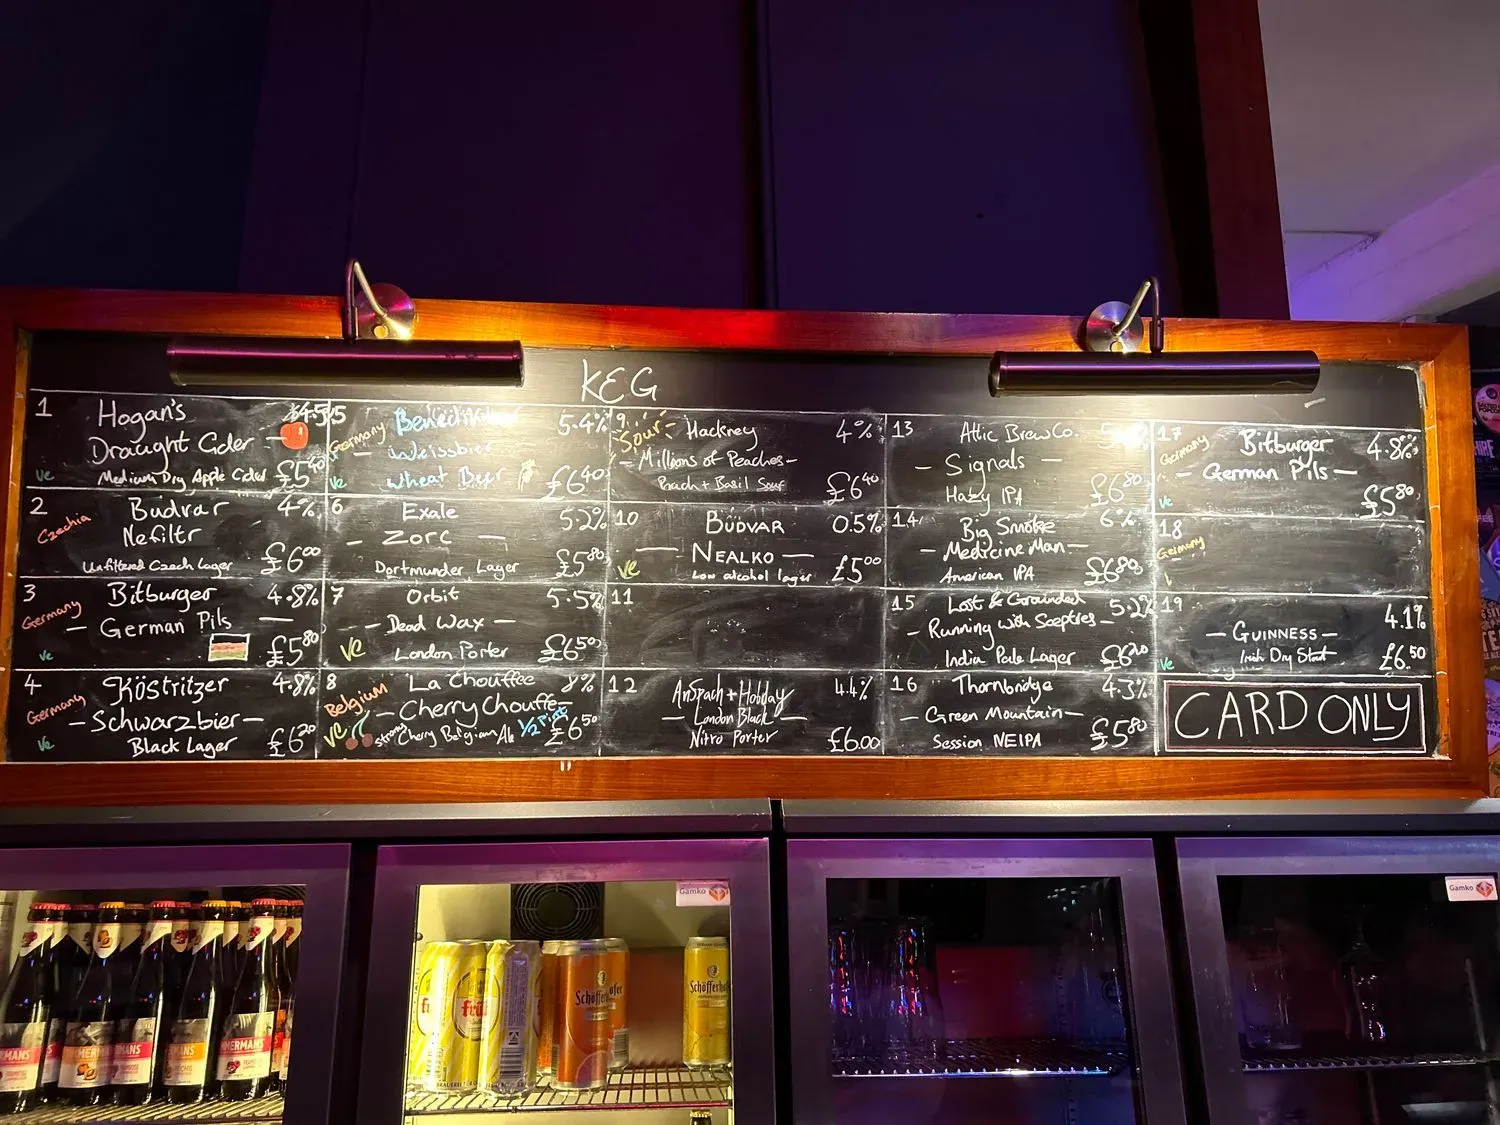 KEG
1
Hogan's
4.5%
Draught Cider
ve
Medium Dry Apple Cider
£5⁴⁰
2
Budvar
4%
Czechia
Nefiltr
Unfiltered Czech Lager
£6⁰⁰
3
Bitburger
4.8%
Germany
— German Pils —
ve
£5⁸⁰
4
Köstritzer
4.8%
Germany
— Schwarzbier —
ve
Black Lager
£6²⁰
5
5.4%
Germany
Weissbier
ve
Wheat Beer
£6⁴⁰
6
Exale
5.2%
— Zorc —
Dortmunder Lager
£5⁸⁰
7
Orbit
5.5%
— Dead Wax —
ve
London Porter
£6⁵⁰
8
La Chouffee
8%
Belgium
— Cherry Chouffe
ve
Strong Cherry Belgian Ale
½ Pint
£6⁵⁰
9
Sour
Hackney
4%
— Millions of Peaches —
Peach + Basil Sour
£6⁴⁰
10
BUDVAR
0.5%
— NEALKO —
ve
Low alcohol lager
£5⁰⁰
11
12
Anspach + Hobday
4.4%
— London Black —
Nitro Porter
£6.00
13
Attic Brew Co.
— Signals —
Hazy IPA
£6⁸⁰
14
Big Smoke
6%
— Medicine Man —
American IPA
£6⁸⁰
15
Lost & Grounded
5.2%
— Running with Sceptres —
India Pale Lager
£6²⁰
16
Thornbridge
4.3%
— Green Mountain —
Session NEIPA
£5⁸⁰
17
Germany
Bitburger
4.8%
— German Pils —
ve
£5⁸⁰
18
Germany
19
4.1%
— GUINNESS —
ve
Irish Dry Stout
£6.50
CARD ONLY
Gamko
Gamko
Schöfferhofer
früh